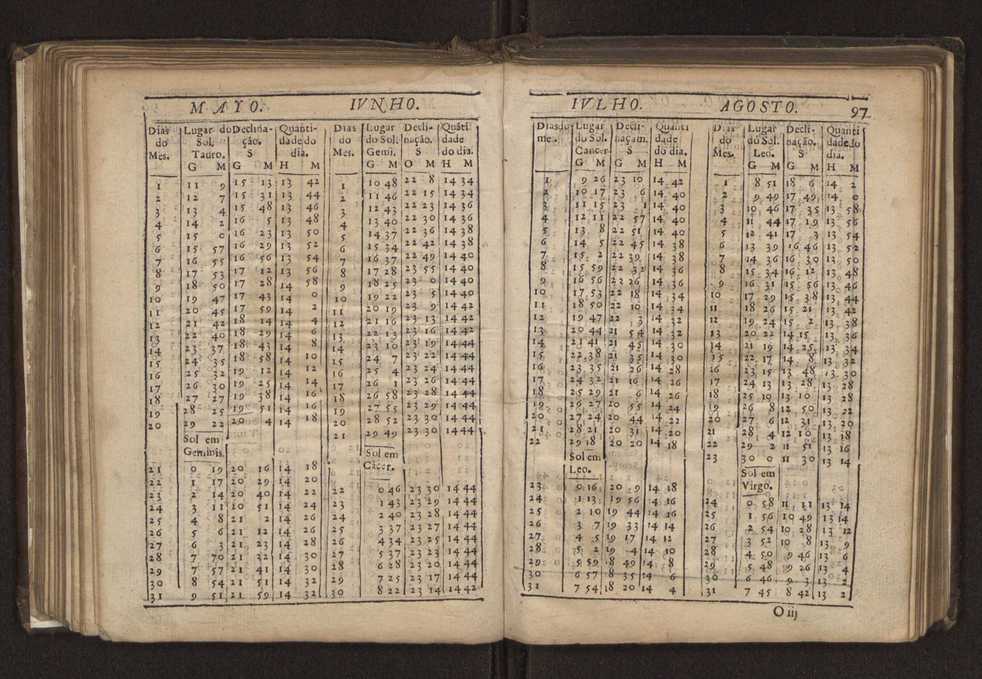 MAYO. IVNHO.
Dias do Mes. Lugar do Sol. Tauro. Declinação. S Quantidade do dia.
G M G M H M
1 11 9 15 13 13 42
2 12 7 15 31 13 44
3 13 4 15 48 13 46
4 14 2 16 5 13 48
5 15 0 16 23 13 50
6 15 57 16 29 13 52
7 16 55 16 56 13 54
8 17 53 17 12 13 56
9 18 50 17 28 14 58
10 19 47 17 43 14 0
11 20 45 17 59 14 2
12 21 42 18 14 14 4
13 22 40 18 29 14 6
14 23 37 18 43 14 8
15 24 35 18 58 14 10
16 25 32 19 12 14 12
17 26 30 19 25 14 14
18 27 27 19 38 14 16
19 28 25 19 51 14 16
20 29 22 20 4 14 18
Sol em
Geminis.
21 0 19 20 16 14 18
22 1 17 20 29 14 20
23 2 14 20 40 14 22
24 3 11 10 51 14 24
25 4 8 21 2 14 26
26 5 6 21 12 14 26
27 6 3 21 23 14 28
28 7 70 21 22 14 30
29 7 57 21 41 14 30
30 8 54 21 51 14 32
31 9 51 21 59 14 32
Dias do Mes. Lugar do Sol. Gemi. Declinação. S Quãtidade do dia.
G M O M H M
1 10 48 22 8 14 34
2 11 46 22 15 14 34
3 12 43 22 23 14 36
4 13 40 22 30 14 36
5 14 37 22 36 14 38
6 15 34 22 42 14 38
7 16 37 22 49 14 40
8 17 28 22 55 14 40
9 18 25 23 0 14 40
10 19 22 23 5 14 40
11 20 19 23 9 14 42
12 21 16 23 13 14 42
13 22 13 23 16 14 42
14 23 10 23 19 14 44
15 24 7 23 22 14 44
16 25 4 23 24 14 44
17 26 1 23 26 14 44
18 26 58 23 28 14 44
19 27 55 23 29 14 44
20 28 52 23 30 14 44
21 29 49 23 30 14 44
Sol em
Cãcer.
22 0 46 23 30 14 44
23 1 43 23 29 14 44
24 2 40 23 28 14 44
25 3 37 23 27 14 44
26 4 34 23 25 14 44
27 5 37 23 23 14 44
28 6 28 23 20 14 44
29 7 25 23 17 14 44
30 8 22 23 14 14 42
IVLHO. AGOSTO. 97
Dias do mes. Lugar do Sol. Cancer. Declinaçam. S Quanti dade do dia.
G M G M H M
1 9 26 23 10 14 42
2 10 17 23 6 14 40
3 11 15 23 1 14 40
4 12 11 22 57 14 40
5 13 8 22 51 14 40
6 14 5 22 45 14 38
7 15 2 22 39 14 38
8 15 59 22 32 14 36
9 16 56 22 26 14 36
10 17 53 22 18 14 34
11 18 50 22 10 14 34
12 19 47 22 3 14 32
13 20 44 21 54 14 32
14 21 41 21 45 14 30
15 22 38 21 35 14 30
16 23 35 21 26 14 28
17 24 32 21 16 14 28
18 25 29 21 6 14 26
19 26 27 20 55 14 24
20 27 24 20 44 14 22
21 28 21 20 31 14 20
22 29 18 20 20 14 18
Sol em
Leo.
23 0 16 20 9 14 18
24 1 13 19 56 14 16
25 2 10 19 44 14 16
26 3 7 19 33 14 14
27 4 5 19 17 14 12
28 5 2 19 4 14 10
29 5 59 18 49 14 8
30 6 57 18 35 14 6
31 7 54 18 20 14 4
Dias do Mes. Lugar do Sol. Leo. Declinação. S Quanti dade do dia.
G M G M H M
1 8 51 18 6 14 2
2 9 49 17 49 14 0
3 10 46 17 35 13 58
4 11 44 17 19 13 56
5 12 41 17 3 13 54
6 13 39 16 46 13 52
7 14 36 16 30 13 50
8 15 34 16 12 13 48
9 16 31 15 56 13 46
10 17 29 15 38 13 44
11 18 26 15 21 13 42
12 19 24 15 2 13 38
13 20 22 14 15 13 36
14 21 19 14 25 13 34
15 22 17 14 8 13 32
16 23 15 13 48 13 30
17 24 13 13 28 13 28
18 25 10 13 10 13 28
19 26 8 12 50 13 22
20 27 6 12 31 13 20
21 28 4 12 10 13 18
22 29 2 11 51 13 16
23 30 0 11 30 13 14
Sol em
Virgo.
24 0 58 11 11 13 14
25 1 56 10 49 13 14
26 2 54 10 28 13 12
27 3 52 10 8 13 9
28 4 50 9 46 13 6
29 5 48 9 26 13 4
30 6 46 9 3 13 2
31 7 45 8 42 13 2
O iij